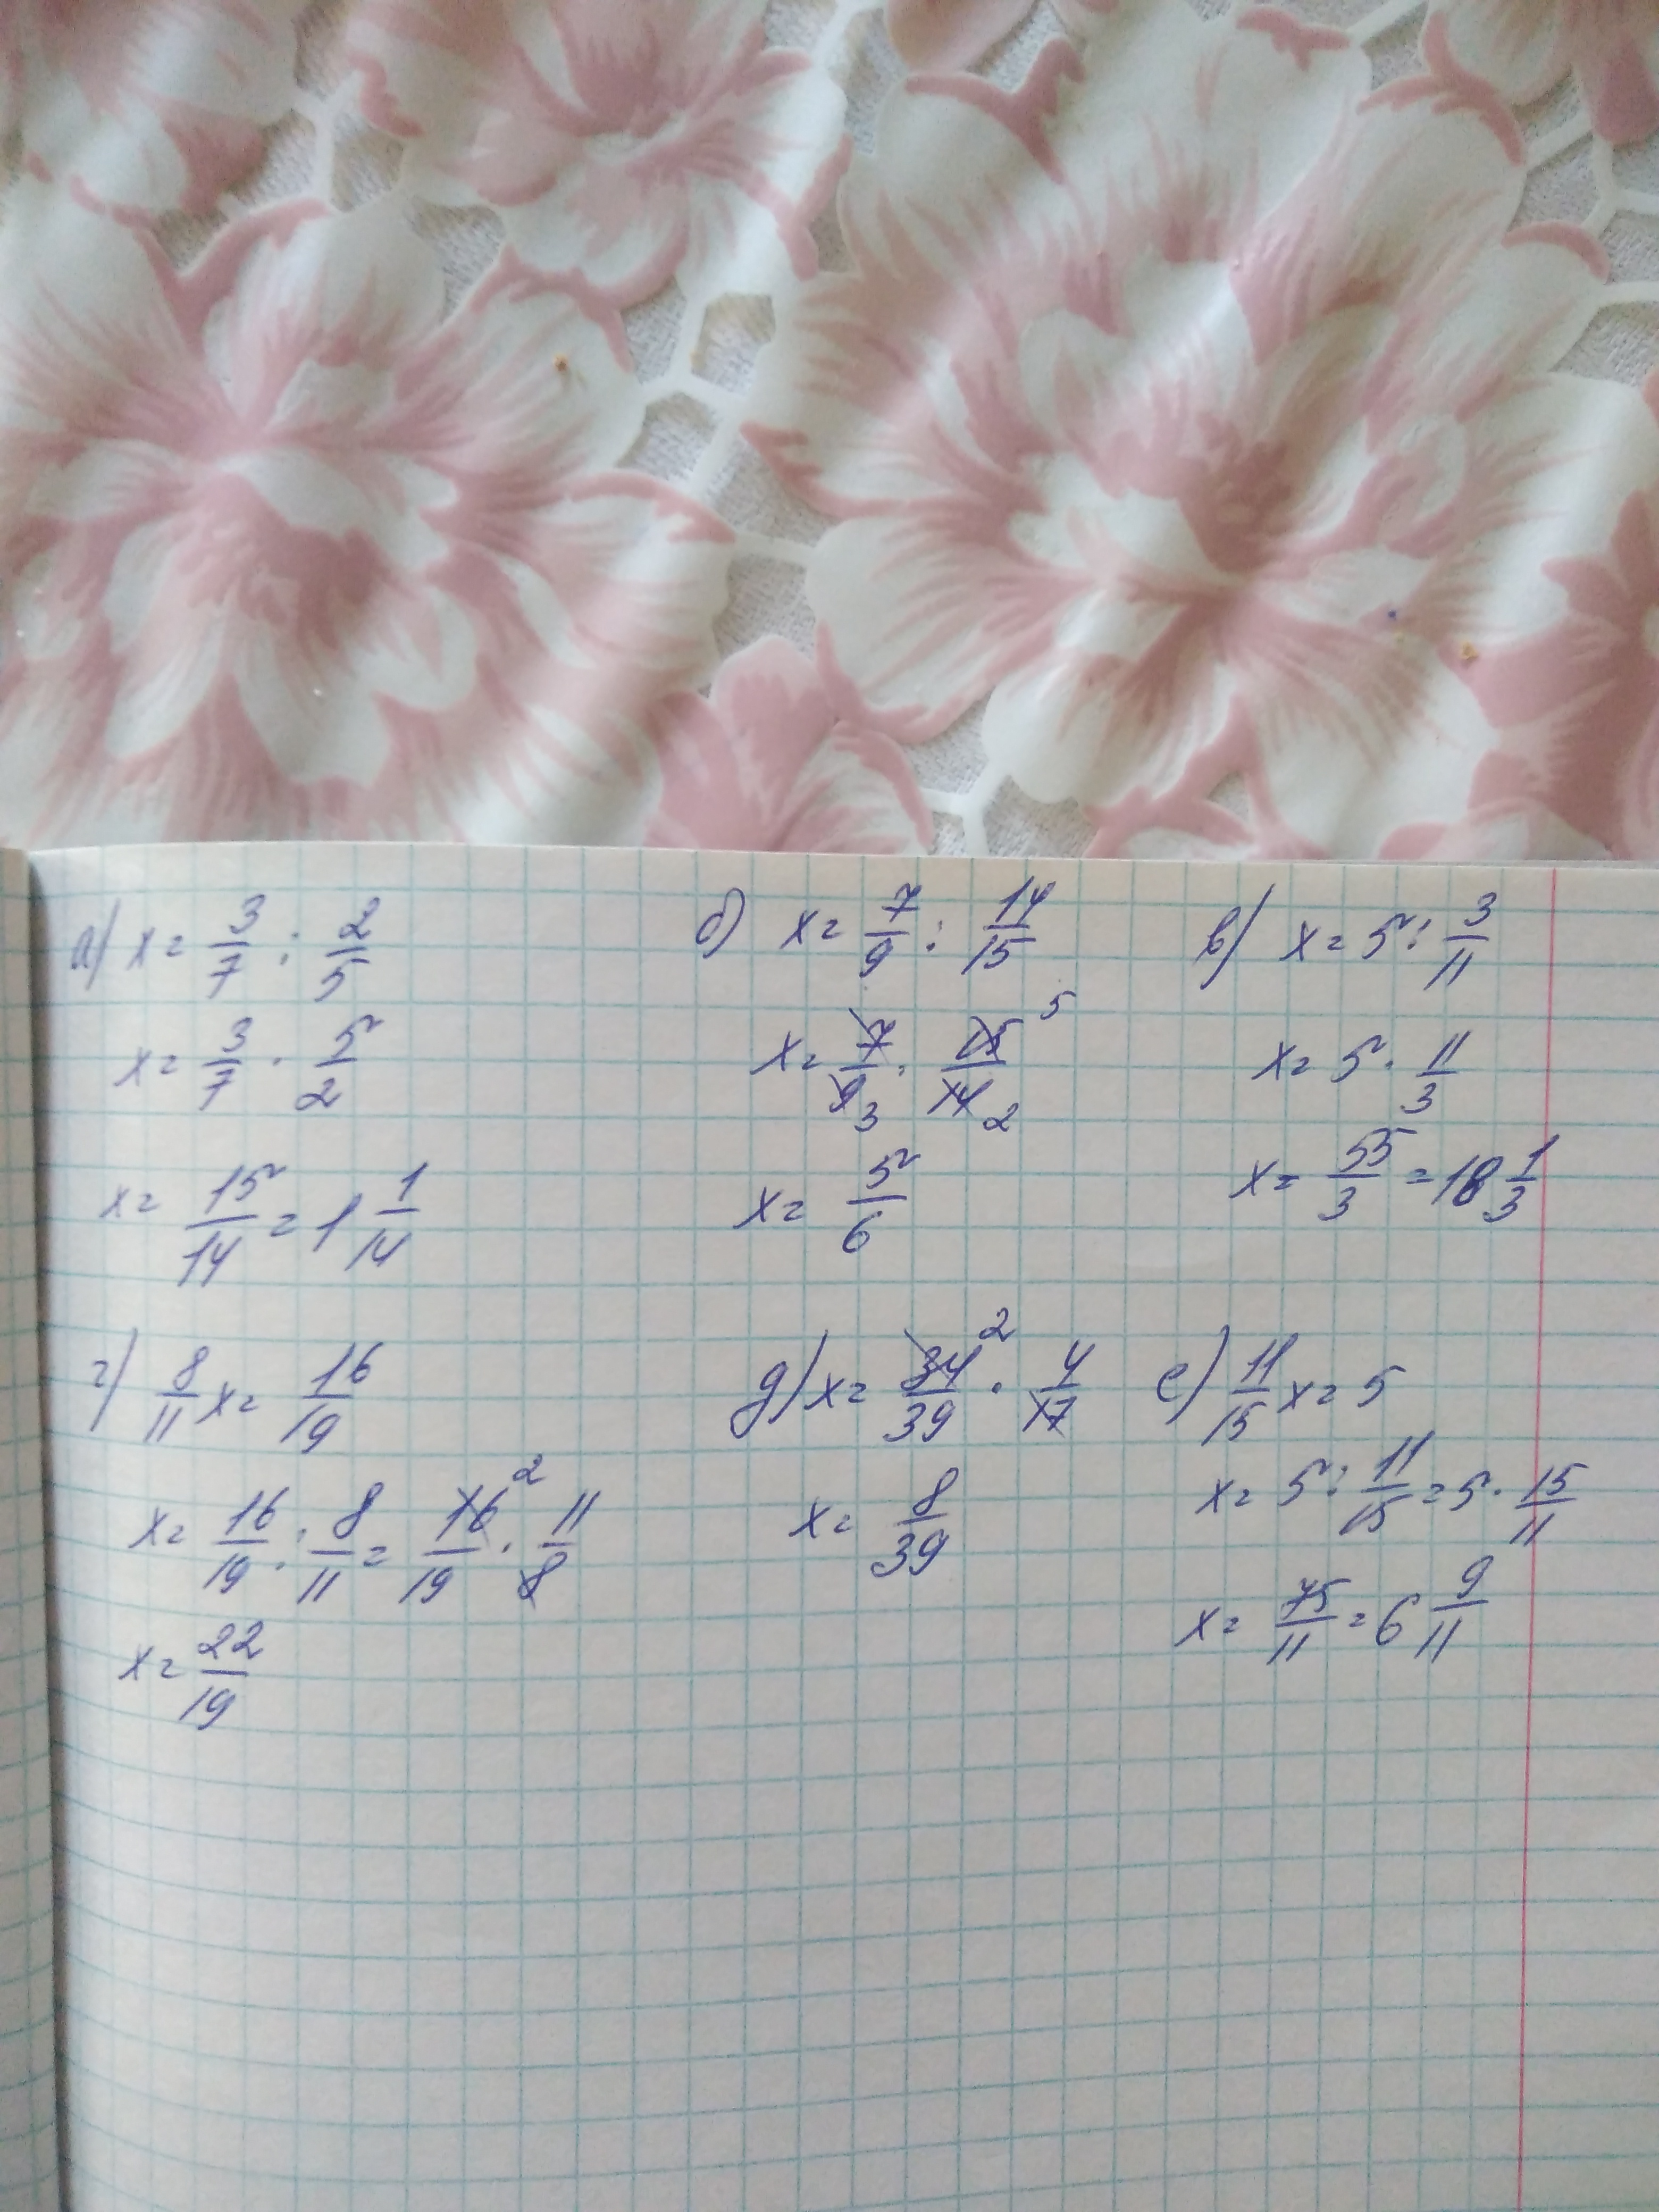 а) x = 3/7 : 2/5
x = 3/7 · 5/2
x = 15/14 = 1 1/14
б) x = 7/9 : 14/15
x = 7/9 3 · 15/14 5 2
x = 5/6
в) x = 5 : 3/11
x = 5 · 11/3
x = 55/3 = 18 1/3
г) 8/11 x = 16/19
x = 16/19 : 8/11 = 16/19 2 · 11/8
x = 22/19
д) x = 34/39 2 · 4/17
x = 8/39
е) 11/15 x = 5
x = 5 : 11/15 = 5 · 15/11
x = 75/11 = 6 9/11